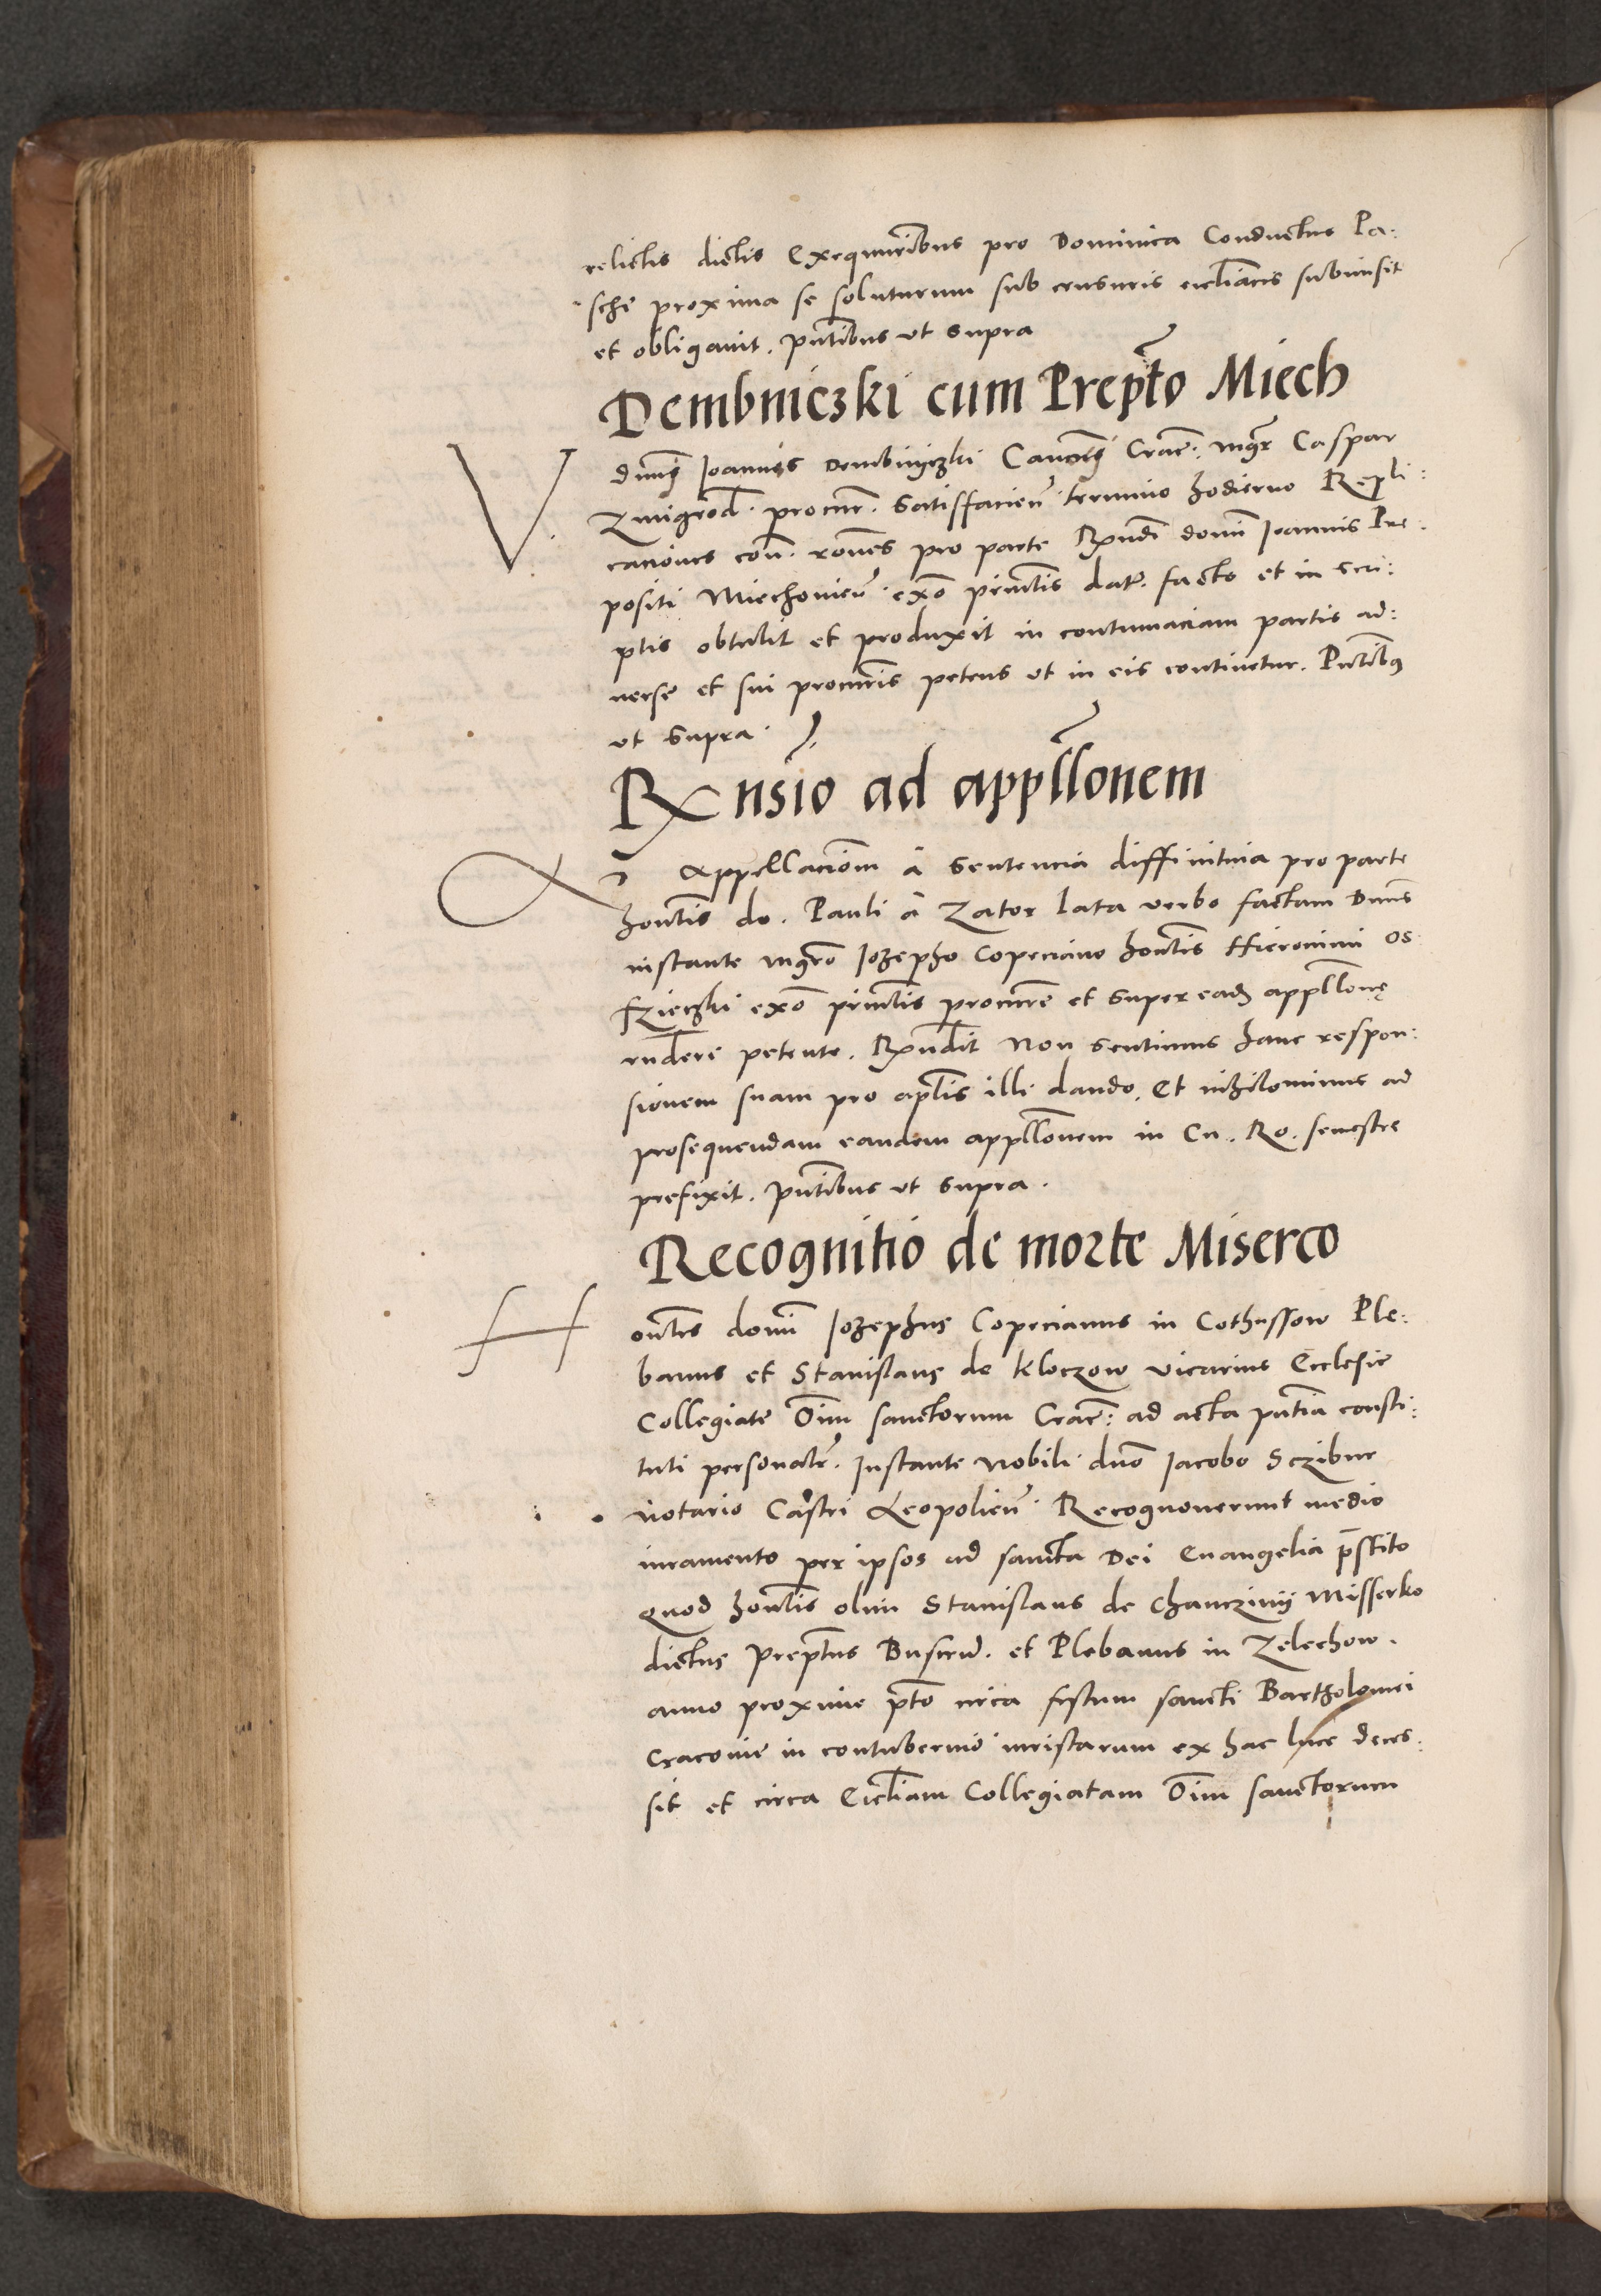 relictis dictis Exequutoribus pro Dominica Conductus Pa:
sche proxima se soluturum sub censuris eccliasticis submisit
et obligavit. pntibus ut supra
Dembniczki cum Prepto Miech
V. dnus Ioannes Dembnyczki Canonicus Crac: mgr Caspar
Zmigrod. procur. satisfacien termino hodierno Repli:
caciones con. rones pro parte Rxndi domi Ioannis Pre
positi Miechovien exo princtis datr. facto et in scri:
ptis obtulit et produxit in contumaciam partis ad:
verse et sui procuris petens ut in eis continetur. Pntibus
ut supra.
Rxnsio ad appllonem
Ad Appellaciom a sentencia diffinitiva pro parte
hontis do. Pauli a Zator lata verbo factam Dnus
instante mgro Iozepho Copeciano hontis Hieronimi Os
frzieczki exo princtis procure et super eadem appllone
rndere petente. Rxndit Non sentimus hanc respon:
sionem suam pro aptis illi dando. Et nihilominus ad
prosequendam eandem appllonem in Cu. Ro. semestre
prefixit. pntibus ut supra.
Recognitio de morte Miserco
H ontes domi Iozephus Copecianus in Cothussow Ple:
banus et Stanislaus de Kloczow vicarius Ecclesie
Collegiate Oim sanctorum Crac: ad acta pntia consti:
tuti personalr. Instante Nobili dno Iacobo Sczibur
Notario Castri Leopolien Recognoverunt medio
iuramento per ipsos ad sancta Dei Evangelia pstito
quod hontis olim Stanislaus de Chanczinij Misserko
dictus Preptus Buscen. et Plebanus in Zelechow.
anno proxime pto circa festum sancti Bartholomei
Cracovie in contubernio iuristarum ex hac luce deces:
sit et circa Eccliam Collegiatam Oim sanctorum